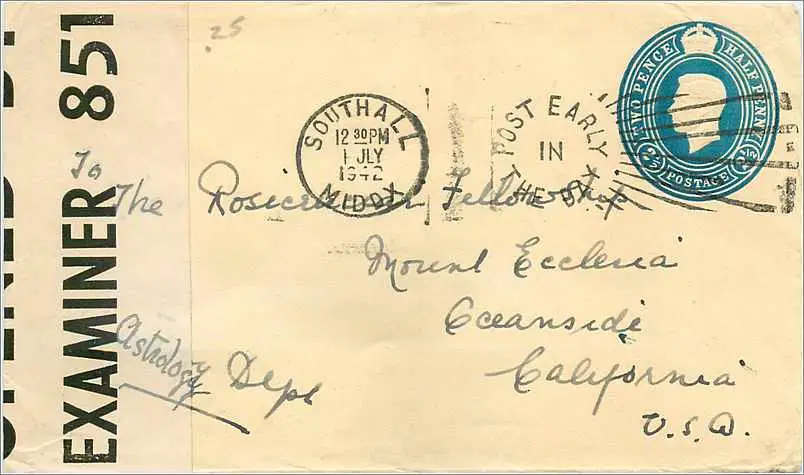 25
EXAMINER 851
SOUTHALL
12 30 PM
1 JLY
1942
MIDDX
POST EARLY
IN
THE DAY
TWO PENCE HALF PENNY
2½ POSTAGE 2½
To
The Rosicrucian Fellowship
Mount Ecclesia
Oceanside
California
U.S.A.
Astrology Dept